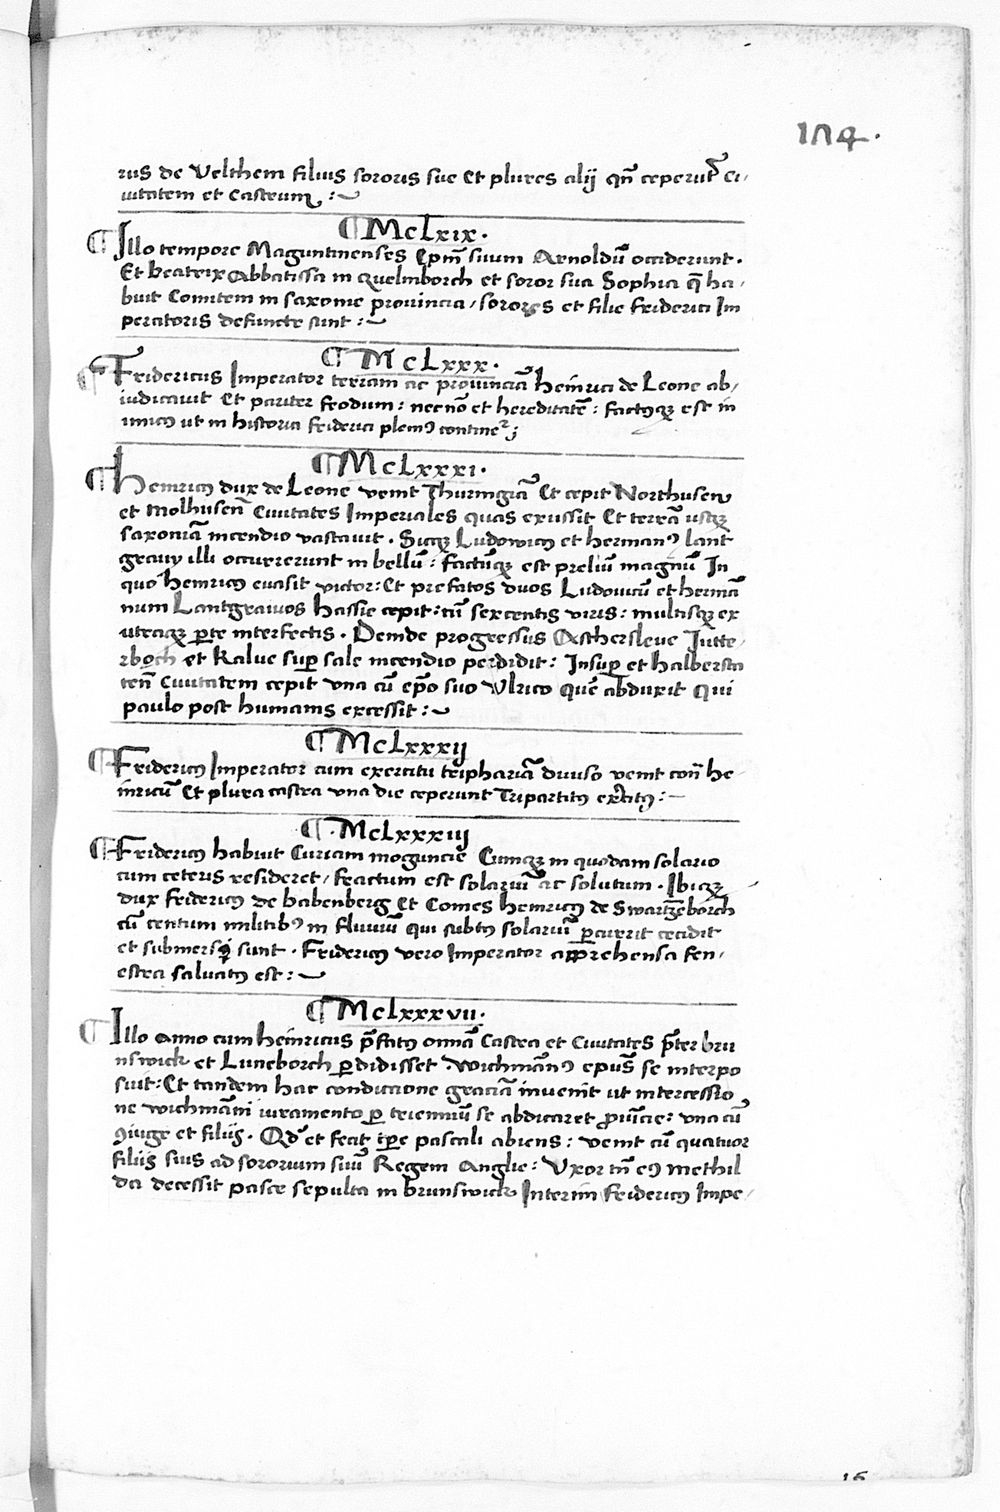 174.
rus de Velthem filius sororis sue Et plures alij qn̄ ceperūt Ci-
uitatem et Castrum :~
¶ McLxix.
¶ Illo tempore Maguntinenses Ep̄m̄ suum Arnoldū occiderunt.
Et Beatrix Abbatissa in Quelinborch et soror sua Sophia q̄ ha-
buit Comitem in saxonie prouincia / sorores et filie friderici Im
peratoris defuncte sunt :~
¶ McLxxx.
¶ Fridericus Imperator terram ac prouinciā Heinrici de Leone ab-
iudicauit Et pariter feodum : necnō et hereditatē : factusqꝫ est in
imicꝰ ut in historia friderici plenꝰ continet᷑ ;
¶ McLxxxi.
¶ Heinricꝰ dux de Leone venit Thuringiā Et cepit Northusen
et Molhusen̄ Ciuitates Imperiales quas exussit Et terrā usqꝫ
saxoniā incendio vastauit . Sicqꝫ Ludowicꝰ et hermanꝰ lant
grauij illi occurrerunt in bellū : factūqꝫ est preliū magnū In
quo heinricꝰ euasit victor : Et prefatos duos Ludouicū et hermā
num Lantgrauios hassie cepit : cū sexcentis viris : multisqꝫ ex
utraqꝫ ꝑte interfectis . Deinde progressus Aschersleue Jutte-
rboch et Kalue suꝑ sale incendio perdidit : Insuꝑ et halbersta
ten̄ Ciuitatem cepit vna cū ep̄o suo Vlrico quē abduxit Qui
paulo post humanis excessit :~
¶ McLxxxij
¶ Fridericꝰ Imperator cum exercitu tripharıā diuiso venit con̄ he-
inricū Et plura castra vna die ceperunt Tripartitꝰ exꝰcitꝰ :—
¶ .McLxxxiij
¶ Fridericꝰ habuit Curiam moguncie Cumqꝫ in quodam solario
cum ceteris resideret / fractum est solariū ac solutum . Ibiqꝫ
dux fridericꝰ de babenberg Et Comes heinricꝰ de Swartzēborch
cū centum militibꝰ in fluuiū qui subtꝰ solariū ꝑcurrit cecidit
et submersi sunt . Fridericꝰ vero Imperator apprehensa fen-
estra saluatꝰ est :~
¶ McLxxxvii.
¶ Illo anno cum heinricus p̄fatꝰ omnia Castra et Ciuitates p̄ter bru
nswick et Luneborch ꝑdidisset . Wichmānꝰ epūs se interpo
suit : Et tandem hac condicione graciā inuenit ut intercessio
ne wichmāni iuramento ꝑ trienniū se abdicaret ꝓuīcie : vna cū
ꝯiuge et filijs . Qd̄ et fecit tp̄e pascali abiens : venit cū quatuor
filijs suis ad sororium suū Regem Anglie : Vxor tn̄ eꝰ methil
da decessit pasce sepulta in brunswick Interim fridericꝰ Impe-
16